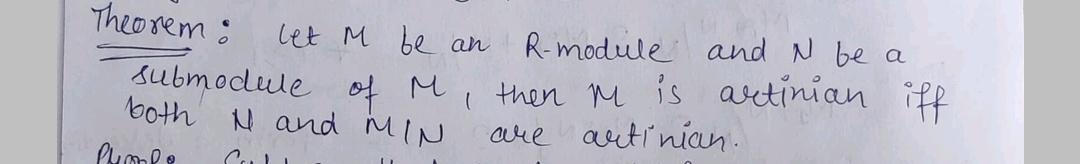 Theorem : let M be an R-module and N be a
submodule of M, then M is artinian iff
both N and M/N are artinian.